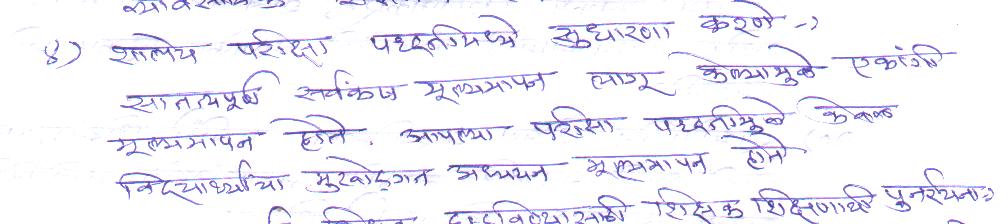 ४) शालेय परीक्षा पध्दतीमध्ये सुधारणा करणे →
सातत्यपूर्ण सर्वंकष मूल्यमापन लागू केल्यामुळे एकांगी
मूल्यमापन होते. आपल्या परीक्षा पध्दतीमुळे केवळ
विद्यार्थ्यांचा मुखोद्गत अध्ययन मूल्यमापन होते
शिक्षक शिक्षणाची पुनर्रचना →